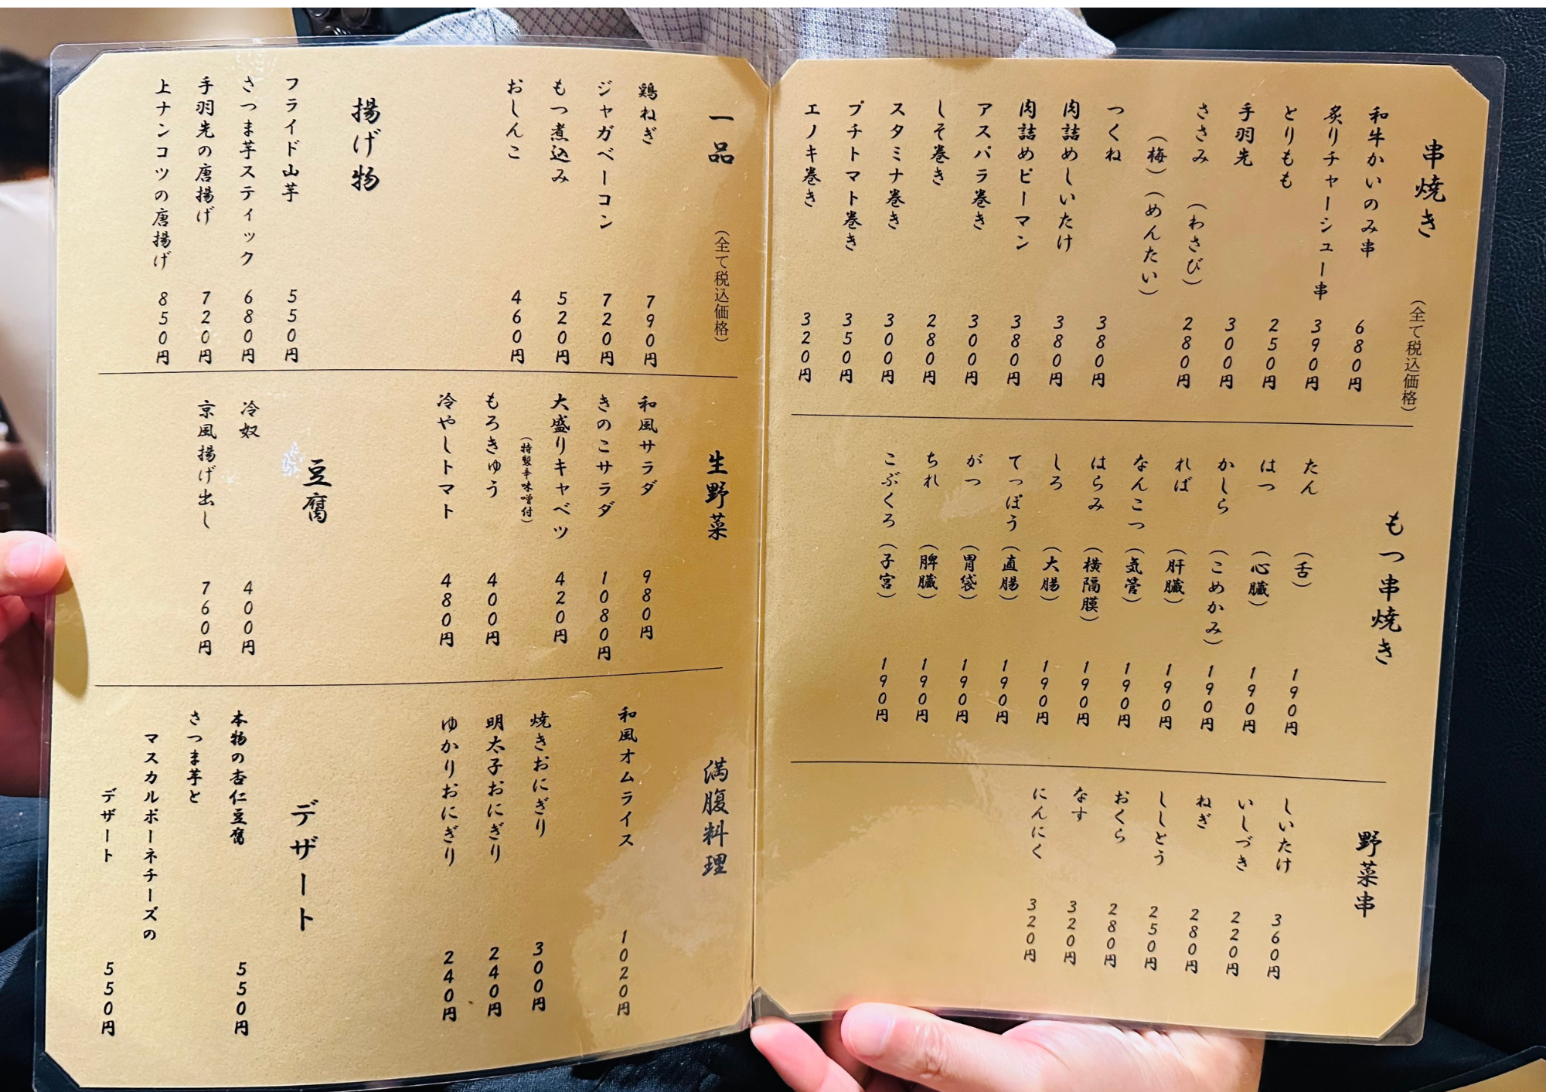 串焼き
(全て税込価格)
和牛かいのみ串 680円
炙りチャーシュー串 390円
とりもも 250円
手羽先 300円
ささみ (わさび) 280円
(梅) (めんたい)
つくね 380円
肉詰めしいたけ 380円
肉詰めピーマン 380円
アスパラ巻き 300円
しそ巻き 280円
スタミナ巻き 300円
プチトマト巻き 350円
エノキ巻き 320円
もつ串焼き
たん (舌) 190円
はつ (心臓) 190円
かしら (こめかみ) 190円
れば (肝臓) 190円
なんこつ (気管) 190円
はらみ (横隔膜) 190円
しろ (大腸) 190円
てっぽう (直腸) 190円
がつ (胃袋) 190円
ちれ (脾臓) 190円
こぶくろ (子宮) 190円
野菜串
しいたけ 360円
いしづき 220円
ねぎ 280円
ししとう 250円
おくら 280円
なす 320円
にんにく 320円
一品
(全て税込価格)
鶏ねぎ 790円
ジャガベーコン 720円
もつ煮込み 520円
おしんこ 460円
揚げ物
フライド山芋 550円
さつま芋スティック 680円
手羽先の唐揚げ 720円
上ナンコツの唐揚げ 850円
生野菜
和風サラダ 980円
きのこサラダ 1080円
大盛りキャベツ 420円
(特製辛味噌付)
もろきゅう 400円
冷やしトマト 480円
豆腐
冷奴 400円
京風揚げ出し 760円
満腹料理
和風オムライス 1020円
焼きおにぎり 300円
明太子おにぎり 240円
ゆかりおにぎり 240円
デザート
本物の杏仁豆腐 550円
さつま芋と
マスカルポーネチーズの
デザート 550円